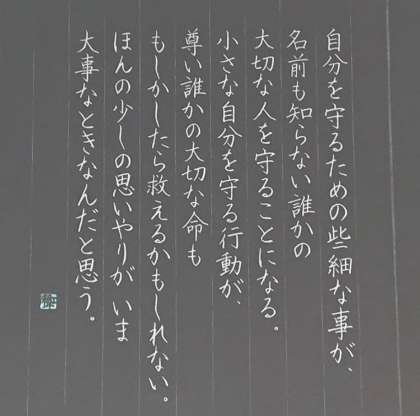 自分を守るための些細な事が、
名前も知らない誰かの
大切な人を守ることになる。
小さな自分を守る行動が、
尊い誰かの大切な命も
もしかしたら救えるかもしれない。
ほんの少しの思いやりが いま
大事なときなんだと思う。